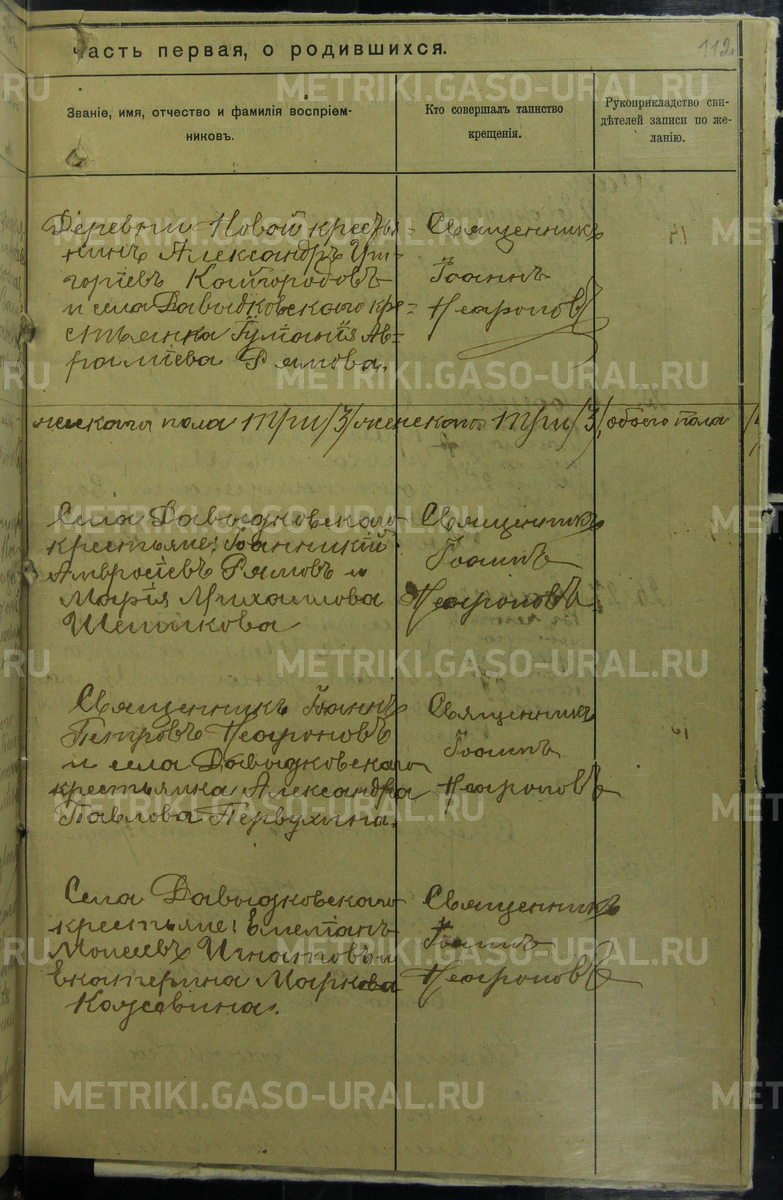 Часть первая, о родившихся.
112
Званіе, имя, отчество и фамилія воспріем-
никовъ.
Кто совершалъ таинство
крещенія.
Рукоприкладство сви-
дѣтелей записи по же-
ланію.
Деревни Новой кресть-
янинъ Александръ Гри-
горьевъ Кайгородовъ
и села Давыдковскаго кре-
стьянка
Рямова.
Священникъ
Іоаннъ
Неароновъ
мужскаго пола три /3/ женскаго три /3/, обоего пола
Села Давыдковскаго
крестьяне: Іоанникій
Амвросіевъ Рямовъ и
Марія Михаилова
Шешукова
Священникъ
Іоаннъ
Неароновъ
Священникъ Іоаннъ
Петровъ Неароновъ
и села Давыдковскаго
крестьянка Александра
Павлова Первухина.
Священникъ
Іоаннъ
Неароновъ
Села Давыдковскаго
крестьяне: Емеліанъ
Моисеевъ Игнатовъ и
Екатерина Маркова
Кожевина.
Священникъ
Іоаннъ
Неароновъ
METRIKI.GASO-URAL.RU